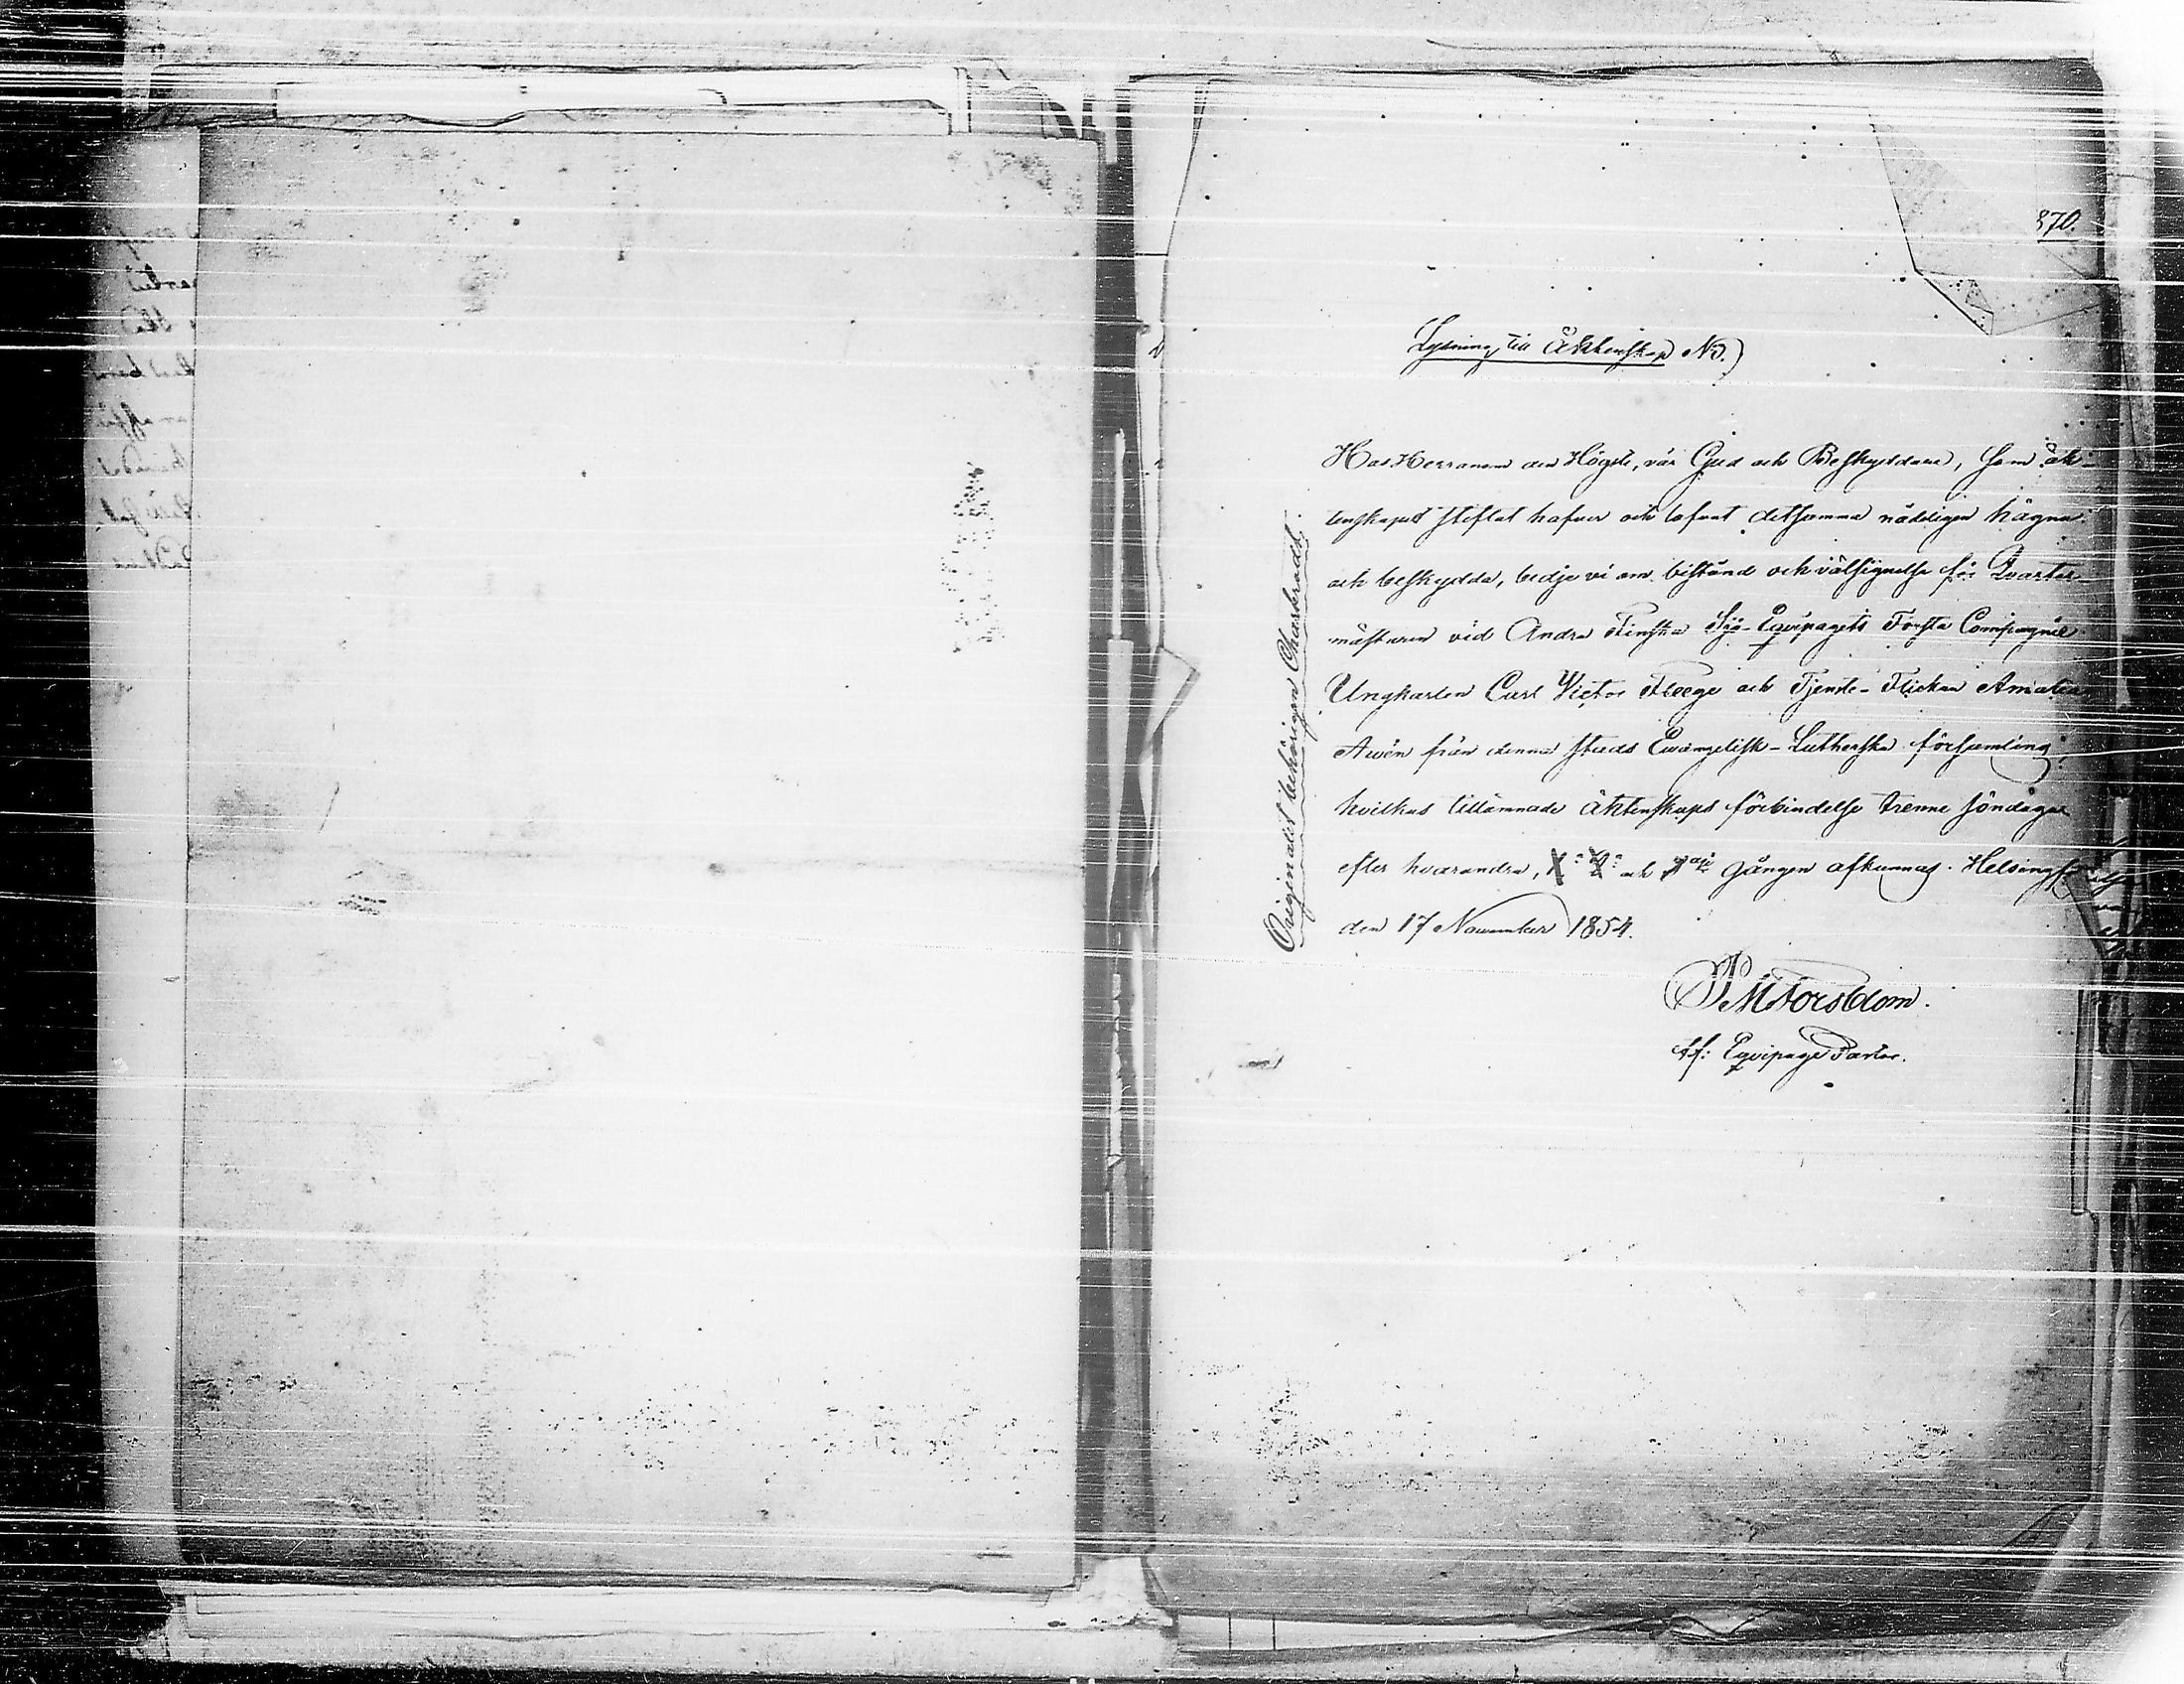 870.
Lysning till Äktenskap No.)
Hos Herranom den Högste, vår Gud och Beskyddare, som äk-
tenskapet stiftat hafver och lofvat detsamma nådeligen hägna
och beskydda, bedje vi om bistånd och välsignelse för Qvarter-
mästaren vid Andra Finska Sjö-Equipagets Första Compagnie
Ungkarlen Carl Victor Fleege och Tjenste-Flickan Amalia
Awén från denna stads Evangelisk-Lutherska församling;
hvilkas tillämnade äktenskaps förbindelse trenne söndagar
efter hvarandra, och gången afkunnas. Helsingf
den 17 November 1854.
Forsblom.
Equipage Pastor.
Originalet behörigen Charteradt.